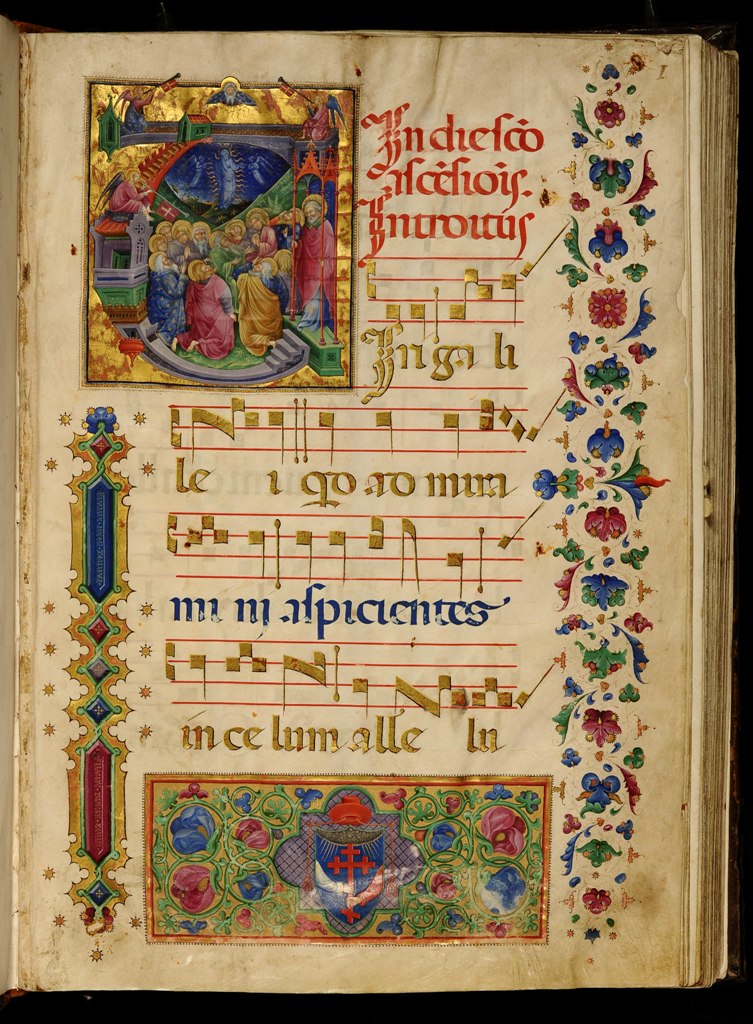 In die sc̄o
ascēsiois.
Introitus
Iri ga li
le i quo ad mira
mi nj aspicientes
in ce lum alle lu